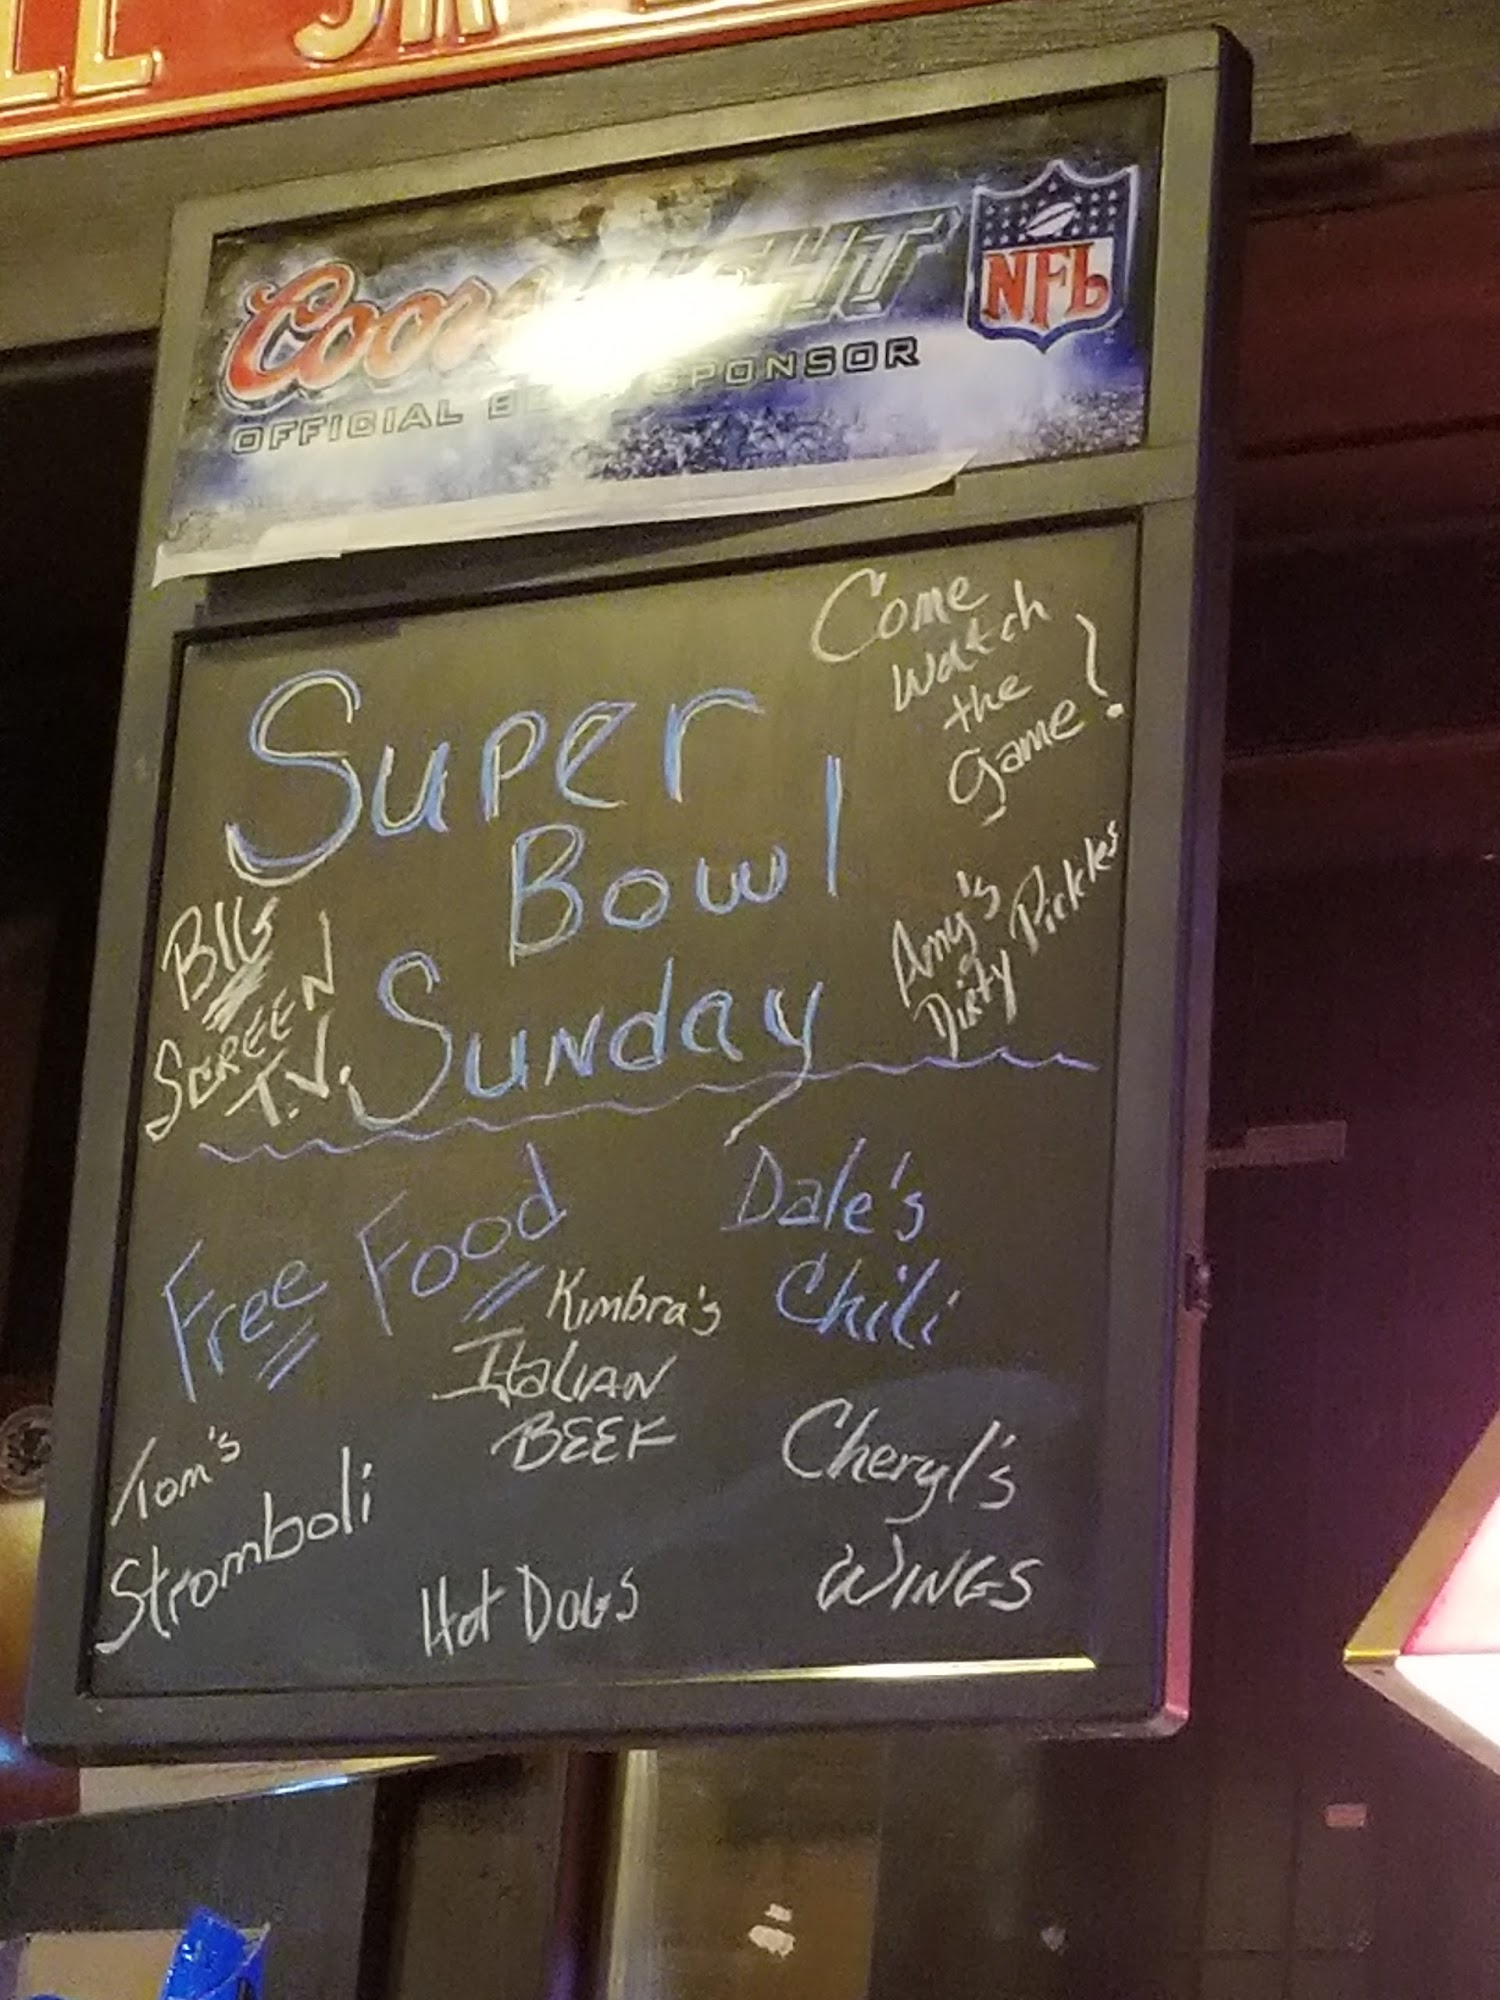 Coors LIGHT
OFFICIAL BEER SPONSOR
NFL
Come
watch
the
game!
Super
Bowl
Sunday
BIG
SCREEN
T.V.
Amy's
Dirty Pickles
Free Food
Dale's
Chili
Kimbra's
ITALIAN
BEEF
Tom's
Stromboli
Cheryl's
WINGS
Hot DOGS